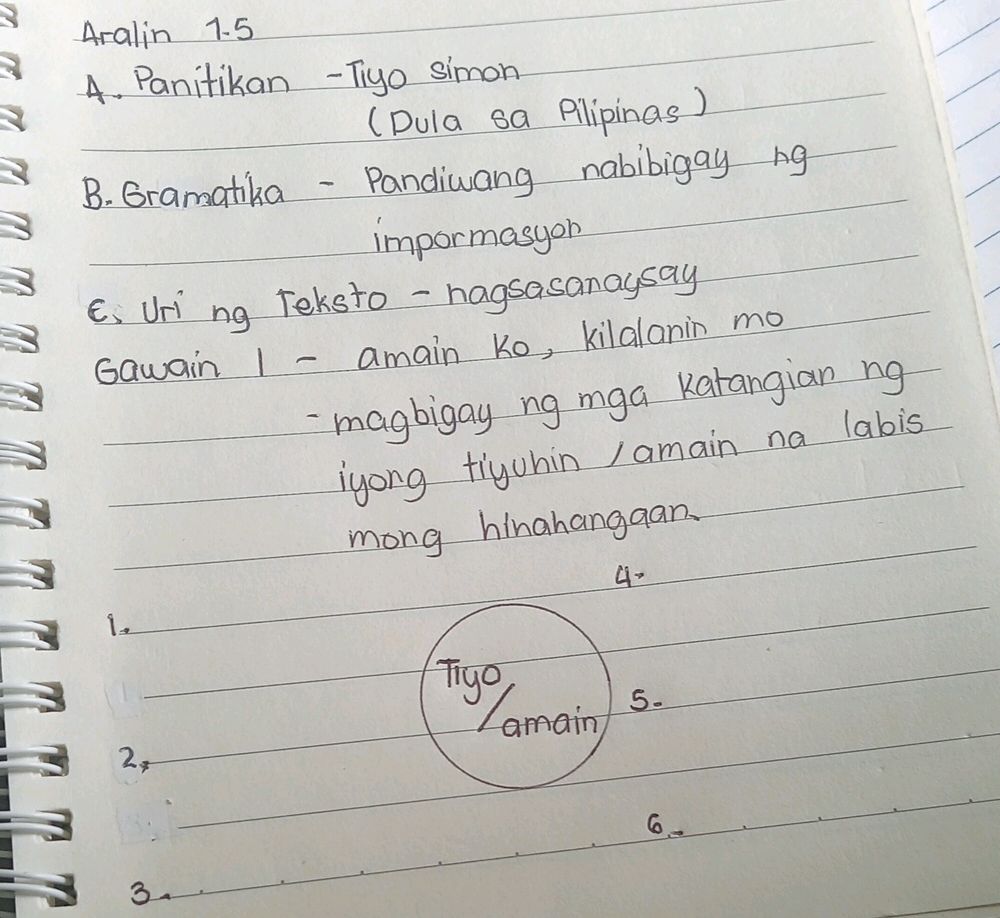 Aralin 1.5
A. Panitikan - Tiyo simon
(Dula sa Pilipinas)
B. Gramatika - Pandiwang nabibigay ng
impormasyon
C. Uri ng Teksto - nagsasanaysay
Gawain 1 - amain ko, kilalanin mo
- magbigay ng mga katangian ng
iyong tiyuhin / amain na labis
mong hinahangaan.
4.
1.
Tiyo
/amain
5.
2.
6.
3.